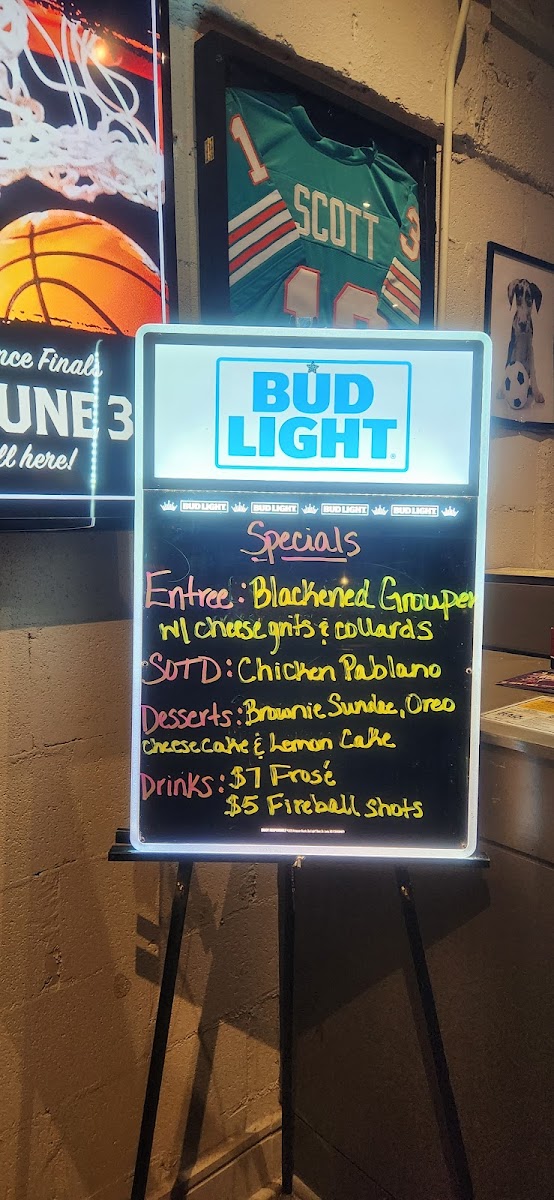 nce Finals
UNE 3
ll here!
1
SCOTT
3
13
BUD
LIGHT
BUD LIGHT BUD LIGHT BUD LIGHT BUD LIGHT
Specials
Entree: Blackened Grouper
w/ cheese grits & collards
SOTD: Chicken Pablano
Desserts: Brownie Sundae, Oreo
Cheesecake & Lemon Cake
Drinks: $7 Frosé
$5 Fireball Shots